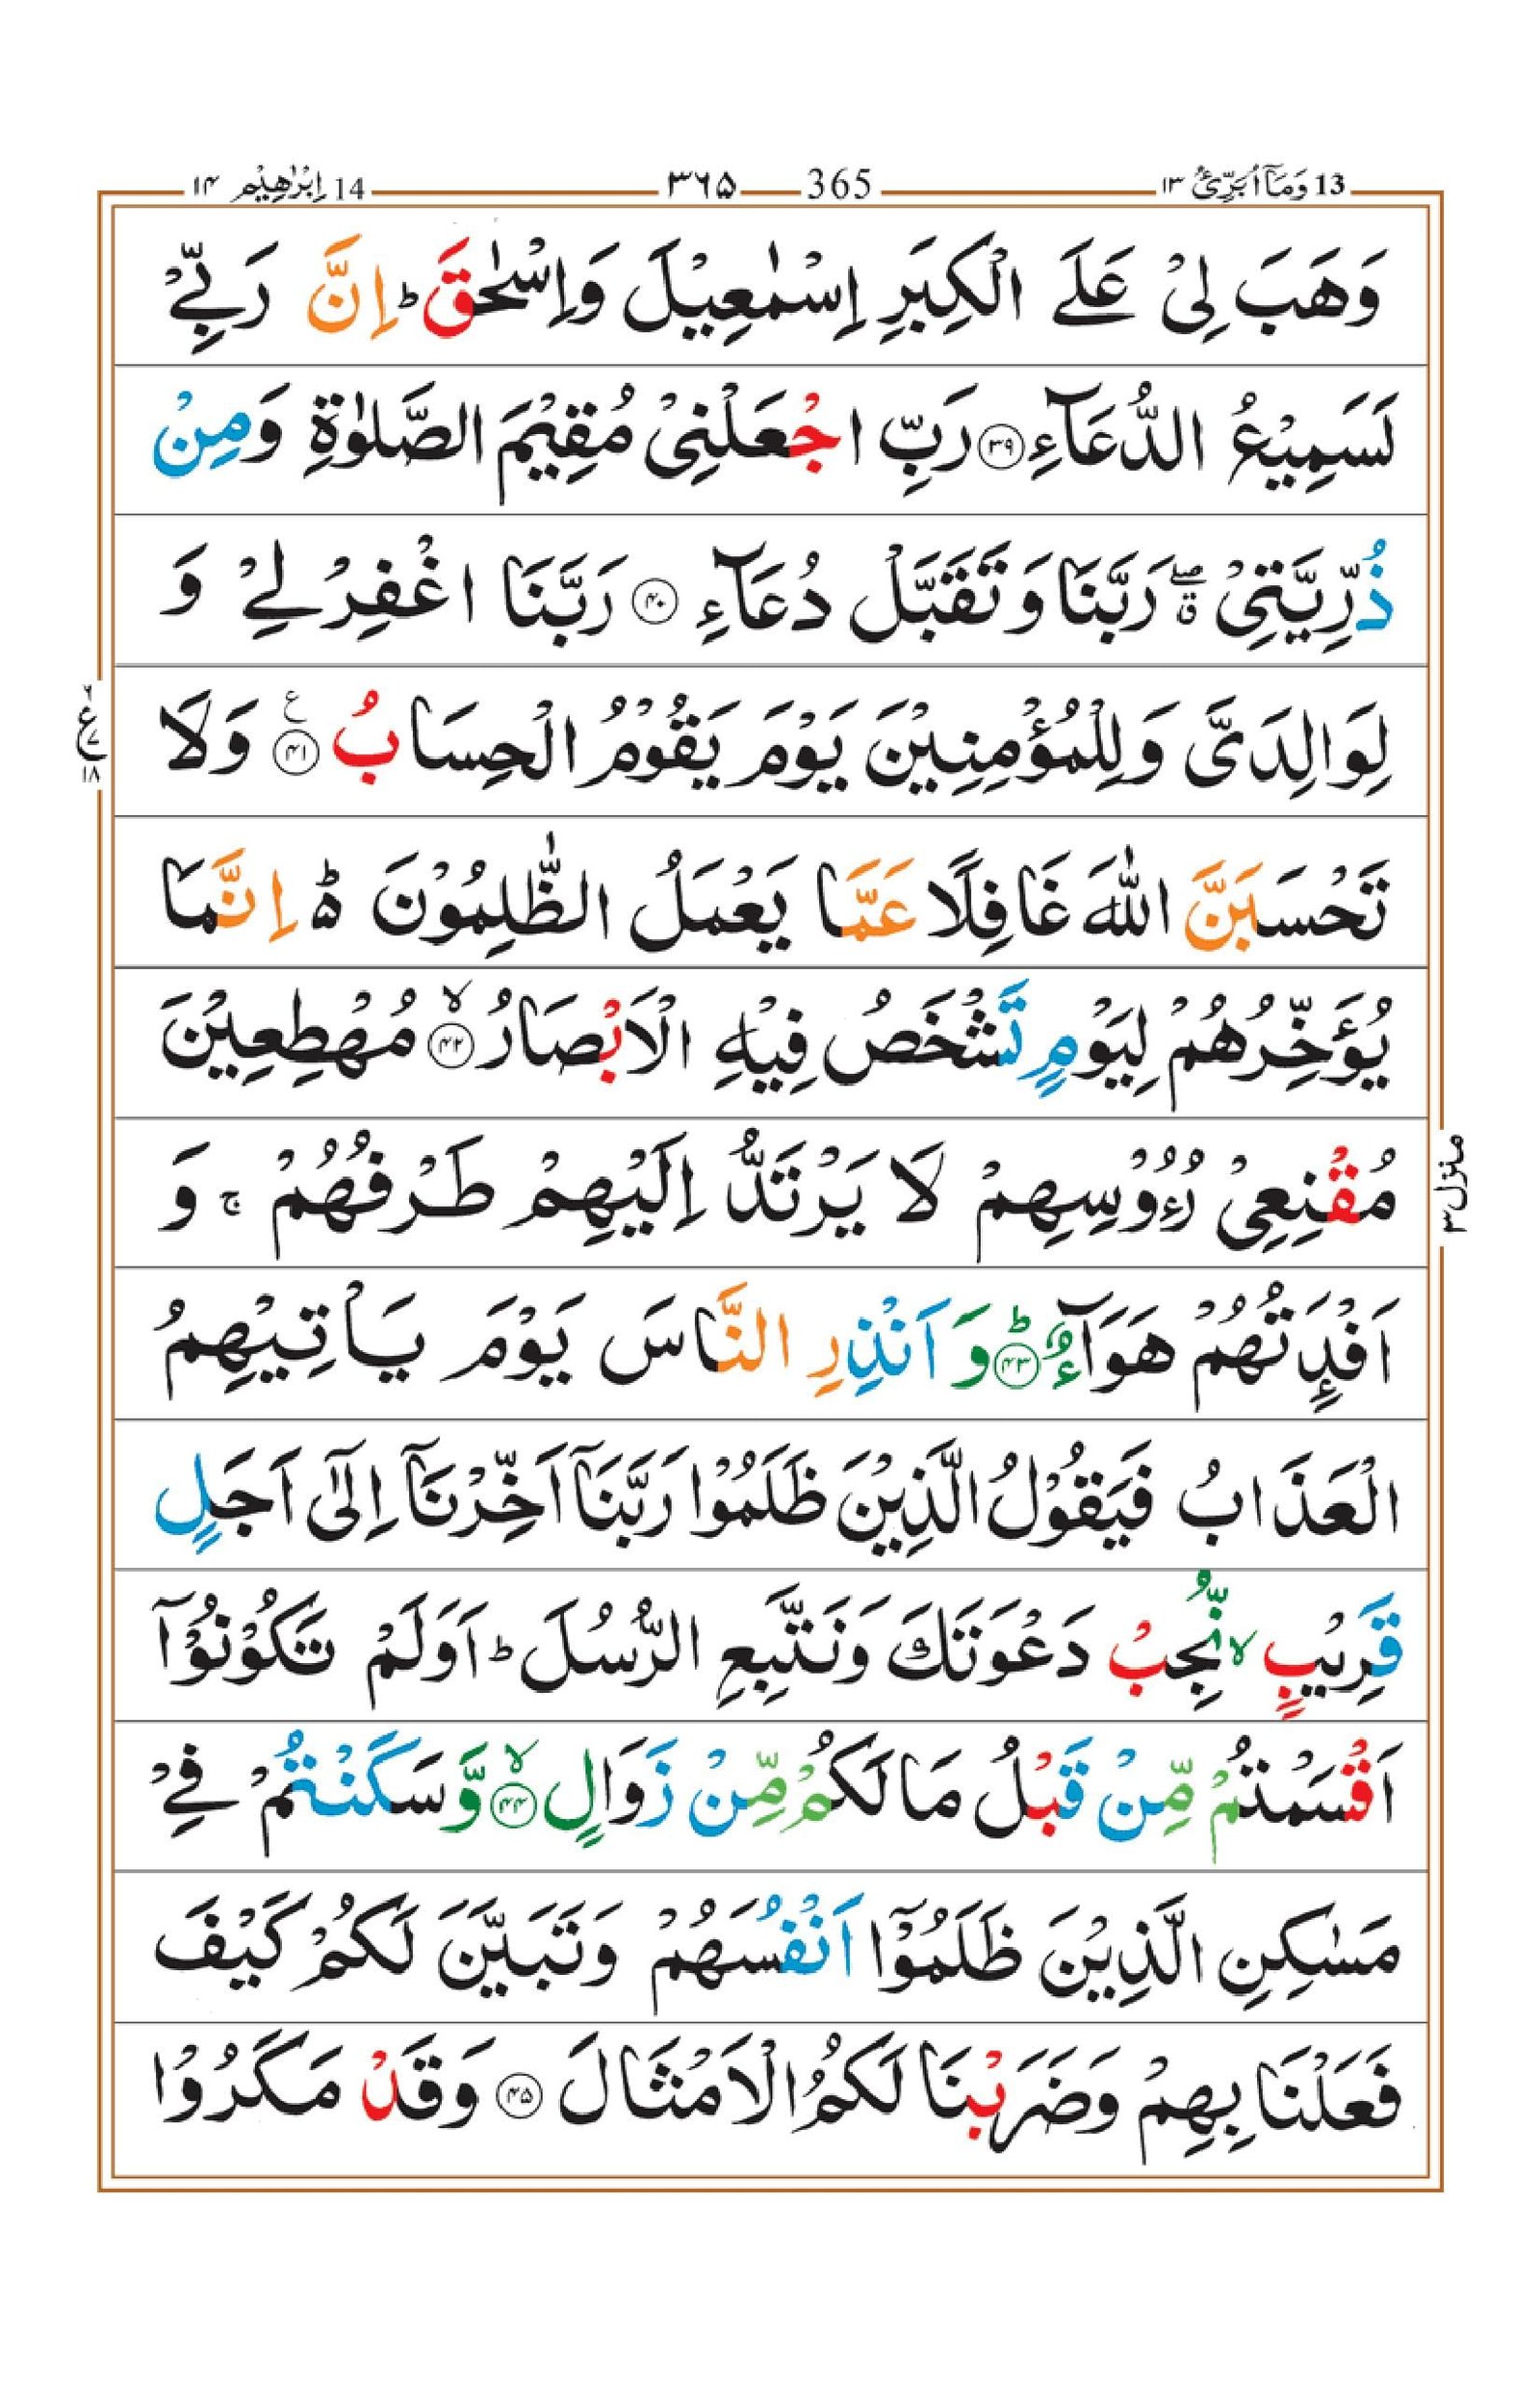 13 وَمَآ اُبَرِّئُ ١٣ 365 ٣٦٥ 14 اِبْرٰهِيْم ١٤
وَهَبَ لِىْ عَلَى الْكِبَرِ اِسْمٰعِيْلَ وَاِسْحٰقَ ؕ اِنَّ رَبِّىْ
لَسَمِيْعُ الدُّعَآءِ ﴿۳۹﴾ رَبِّ اجْعَلْنِىْ مُقِيْمَ الصَّلٰوةِ وَمِنْ
ذُرِّيَّتِىْ ۖق رَبَّنَا وَتَقَبَّلْ دُعَآءِ ﴿۴۰﴾ رَبَّنَا اغْفِرْ لِىْ وَ
لِوَالِدَىَّ وَلِلْمُؤْمِنِيْنَ يَوْمَ يَقُوْمُ الْحِسَابُ ﴿۴۱﴾ ع وَلَا
ع ٧ ١٨
تَحْسَبَنَّ اللّٰهَ غَافِلًا عَمَّا يَعْمَلُ الظّٰلِمُوْنَ ؕ اِنَّمَا
يُؤَخِّرُهُمْ لِيَوْمٍ تَشْخَصُ فِيْهِ الْاَبْصَارُ ﴿۴۲﴾ۙ مُهْطِعِيْنَ
مُقْنِعِىْ رُءُوْسِهِمْ لَا يَرْتَدُّ اِلَيْهِمْ طَرْفُهُمْ ۚ وَ
منزل ٣
اَفْـِٕدَتُهُمْ هَوَآءٌ ﴿۴۳﴾ؕ وَ اَنْذِرِ النَّاسَ يَوْمَ يَاْتِيْهِمُ
الْعَذَابُ فَيَقُوْلُ الَّذِيْنَ ظَلَمُوْا رَبَّنَآ اَخِّرْنَآ اِلٰٓى اَجَلٍ
قَرِيْبٍ ۙ نُّجِبْ دَعْوَتَكَ وَنَتَّبِعِ الرُّسُلَ ؕ اَوَلَمْ تَكُوْنُوْٓا
اَقْسَمْتُمْ مِّنْ قَبْلُ مَا لَكُمْ مِّنْ زَوَالٍ ﴿۴۴﴾ۙ وَّ سَكَنْتُمْ فِىْ
مَسٰكِنِ الَّذِيْنَ ظَلَمُوْٓا اَنْفُسَهُمْ وَتَبَيَّنَ لَكُمْ كَيْفَ
فَعَلْنَا بِهِمْ وَضَرَبْنَا لَكُمُ الْاَمْثَالَ ﴿۴۵﴾ وَقَدْ مَكَرُوْا